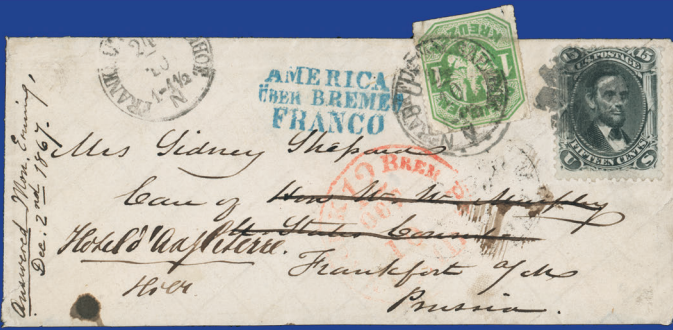 AMERICA
ÜBER BREMEN
FRANCO
KREUZER
1
15 U.S. POSTAGE 15
U FIFTEEN CENTS S
Answered Mon. Evening,
Dec. 2nd 1867.
Mrs Sidney Shepard
Care of Hon W. W. Murphy
U. States Consul
Hotel d'Angleterre.
Frankfort o/M
Hier
Prussia